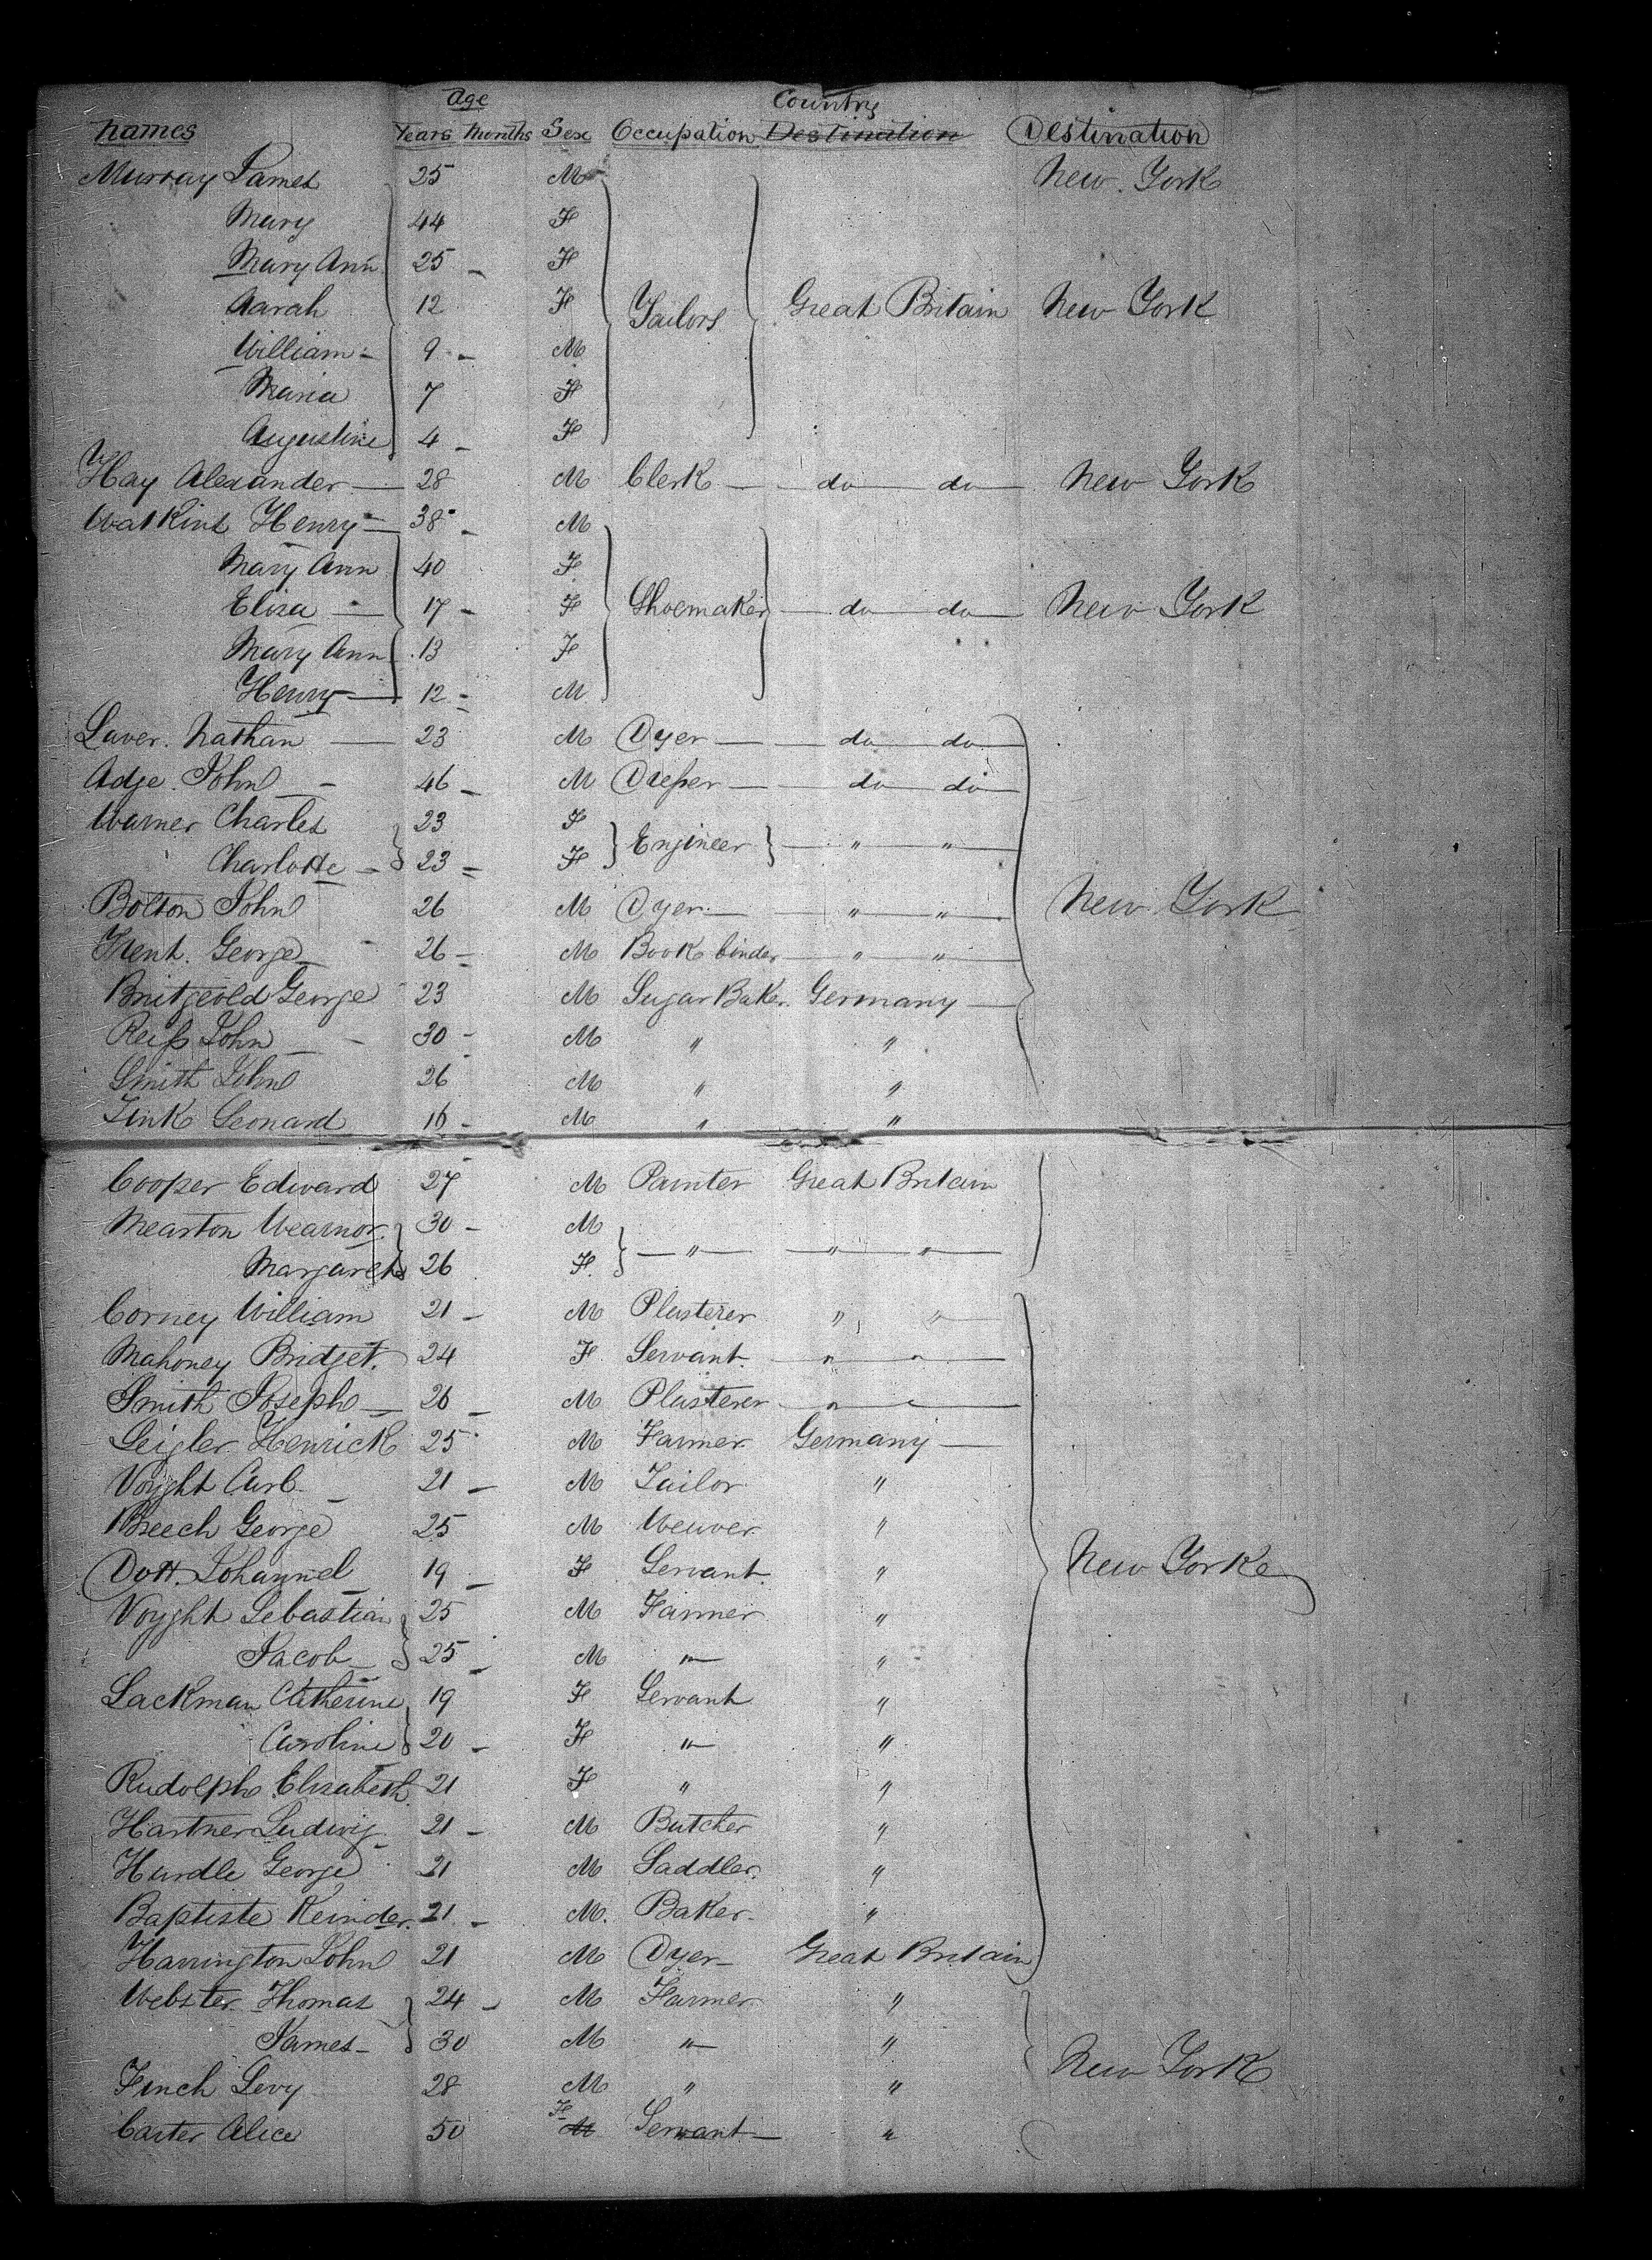 Age Country
Names Years Months Sex Occupation Destination Destination
Murray James 25 M New York
Mary 44 F
Mary Ann 25 F
Sarah 12 F Tailors Great Britain New York
William 9 M
Maria 7 F
Augustine 4 F
Hay Alexander 28 M Clerk do do New York
Watkins Henry 38 M
Mary Ann 40 F
Eliza 17 F Shoemaker do do New York
Mary Ann 13 F
Henry 12 M
Laver Nathan 23 M Dyer do do
Adge John 46 M do do
Warner Charles 23 F
Charlotte 23 F Engineer " "
Bolton John 26 M Dyer " " New York
Kent George 26 M Book binder " "
George 23 M Sugar Baker Germany
Reiß John 30 M " "
Smith John 26 M " "
Zink Leonard 16 M " "
Cooper Edward 27 M Painter Great Britain
Mearton Wearnor 30 M
Margaret 26 F " " "
Corney William 21 M Plasterer " "
Mahoney Bridget 24 F Servant " "
Smith Joseph 26 M Plasterer "
Leigler Henrick 25 M Farmer Germany
Voyght Carl 21 M Tailor "
Breech George 25 M Weaver "
Dott Johannel 19 F Servant " New York
Voyght Sebastian 25 M Farmer "
Jacob 25 M " "
Lackman Catherine 19 F Servant "
Caroline 20 F " "
Rudolph Elizabeth 21 F " "
Hartner Ludwig 21 M Butcher "
Hardle George 21 M Saddler "
Baptiste Reinder 21 M Baker "
Harrington John 21 M Dyer Great Britain
Webster Thomas 24 M Farmer "
James 30 M " " New York
Finch Levy 28 M " "
Carter Alice 50 F M Servant "